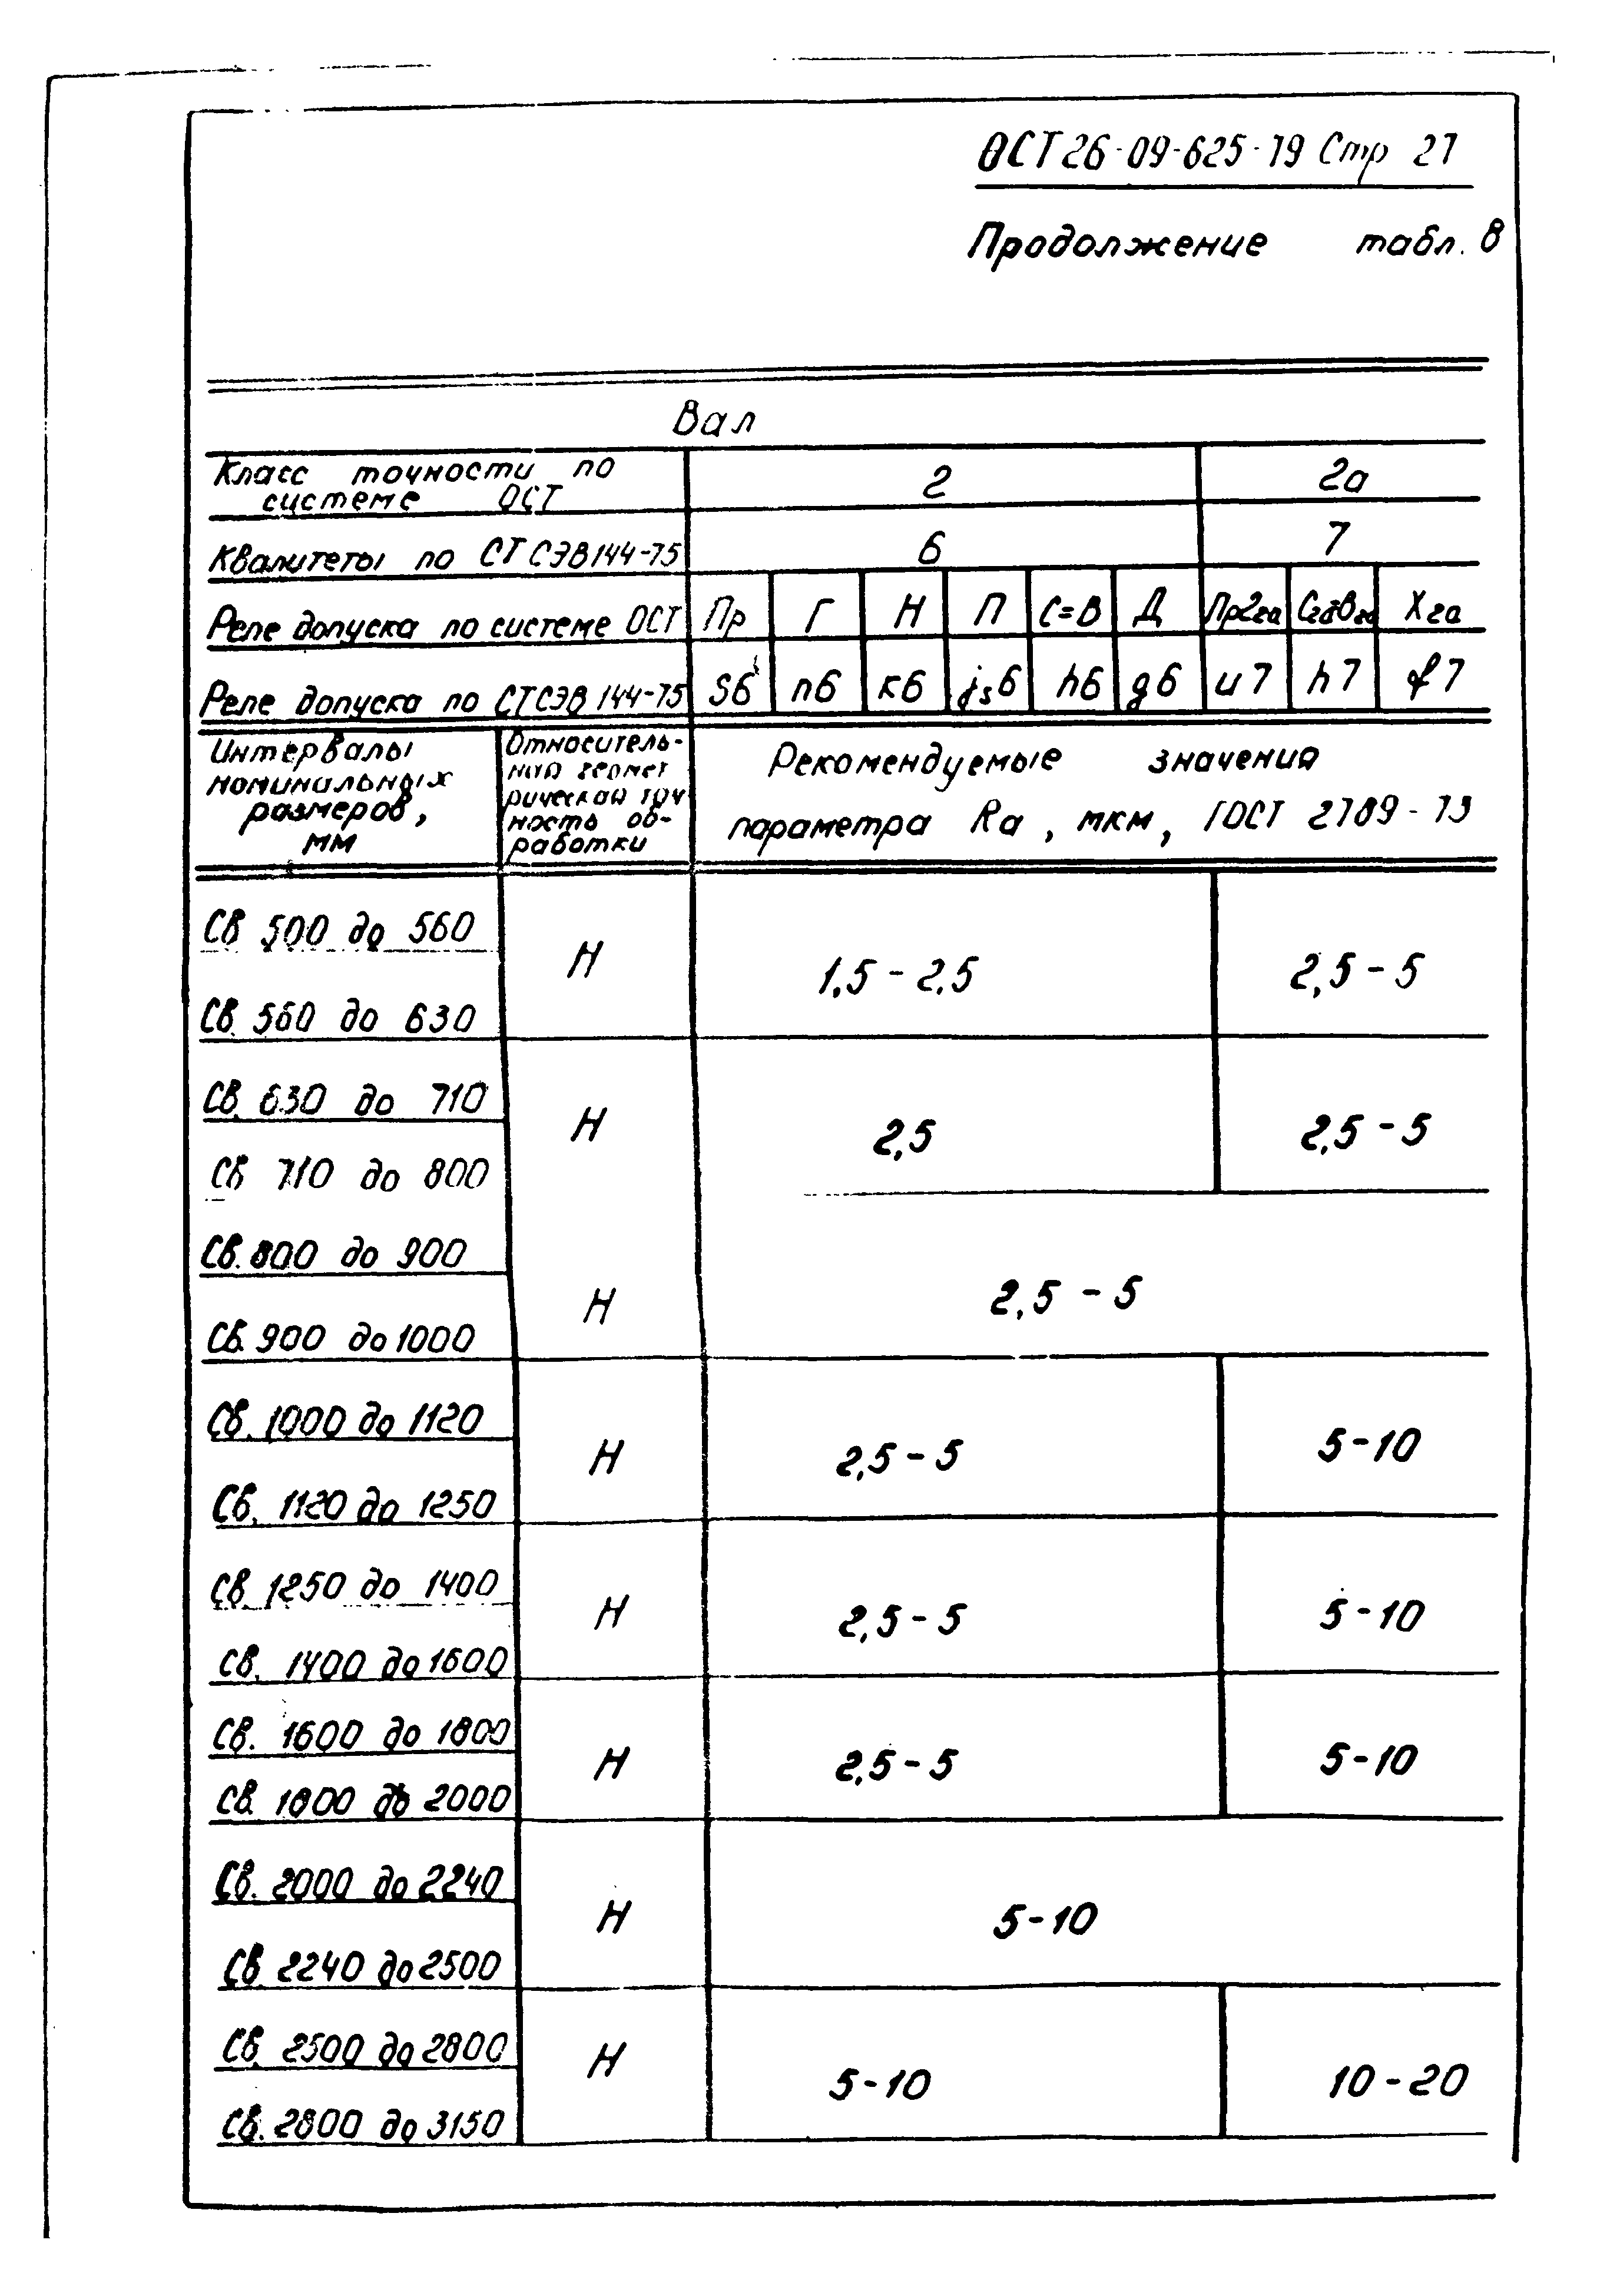 ОСТ 26-09-625-79 Стр 21
Продолжение табл. 8
Вал
Класс точности по системе ОСТ 2 2а
Квалитеты по СТ СЭВ 144-75 6 7
Реле допуска по системе ОСТ Пр Г Н П С=В Д Пр2га С2а=В2а Х2а
Реле допуска по СТ СЭВ 144-75 s6 n6 к6 js6 h6 g6 u7 h7 f7
Интервалы
номинальных
размеров,
мм
Относитель-
ная геомет
рическая точ
ность об-
работки
Рекомендуемые значения
параметра Ra, мкм, ГОСТ 2789-73
Св 500 до 560
Св. 560 до 630
Н 1,5-2,5 2,5-5
Св. 630 до 710
Св 710 до 800
Н 2,5 2,5-5
Св. 800 до 900
Св. 900 до 1000
Н 2,5-5
Св. 1000 до 1120
Св. 1120 до 1250
Н 2,5-5 5-10
Св. 1250 до 1400
св. 1400 до 1600
Н 2,5-5 5-10
Св. 1600 до 1800
Св. 1800 до 2000
Н 2,5-5 5-10
Св. 2000 до 2240
Св 2240 до 2500
Н 5-10
Св. 2500 до 2800
Св. 2800 до 3150
Н 5-10 10-20